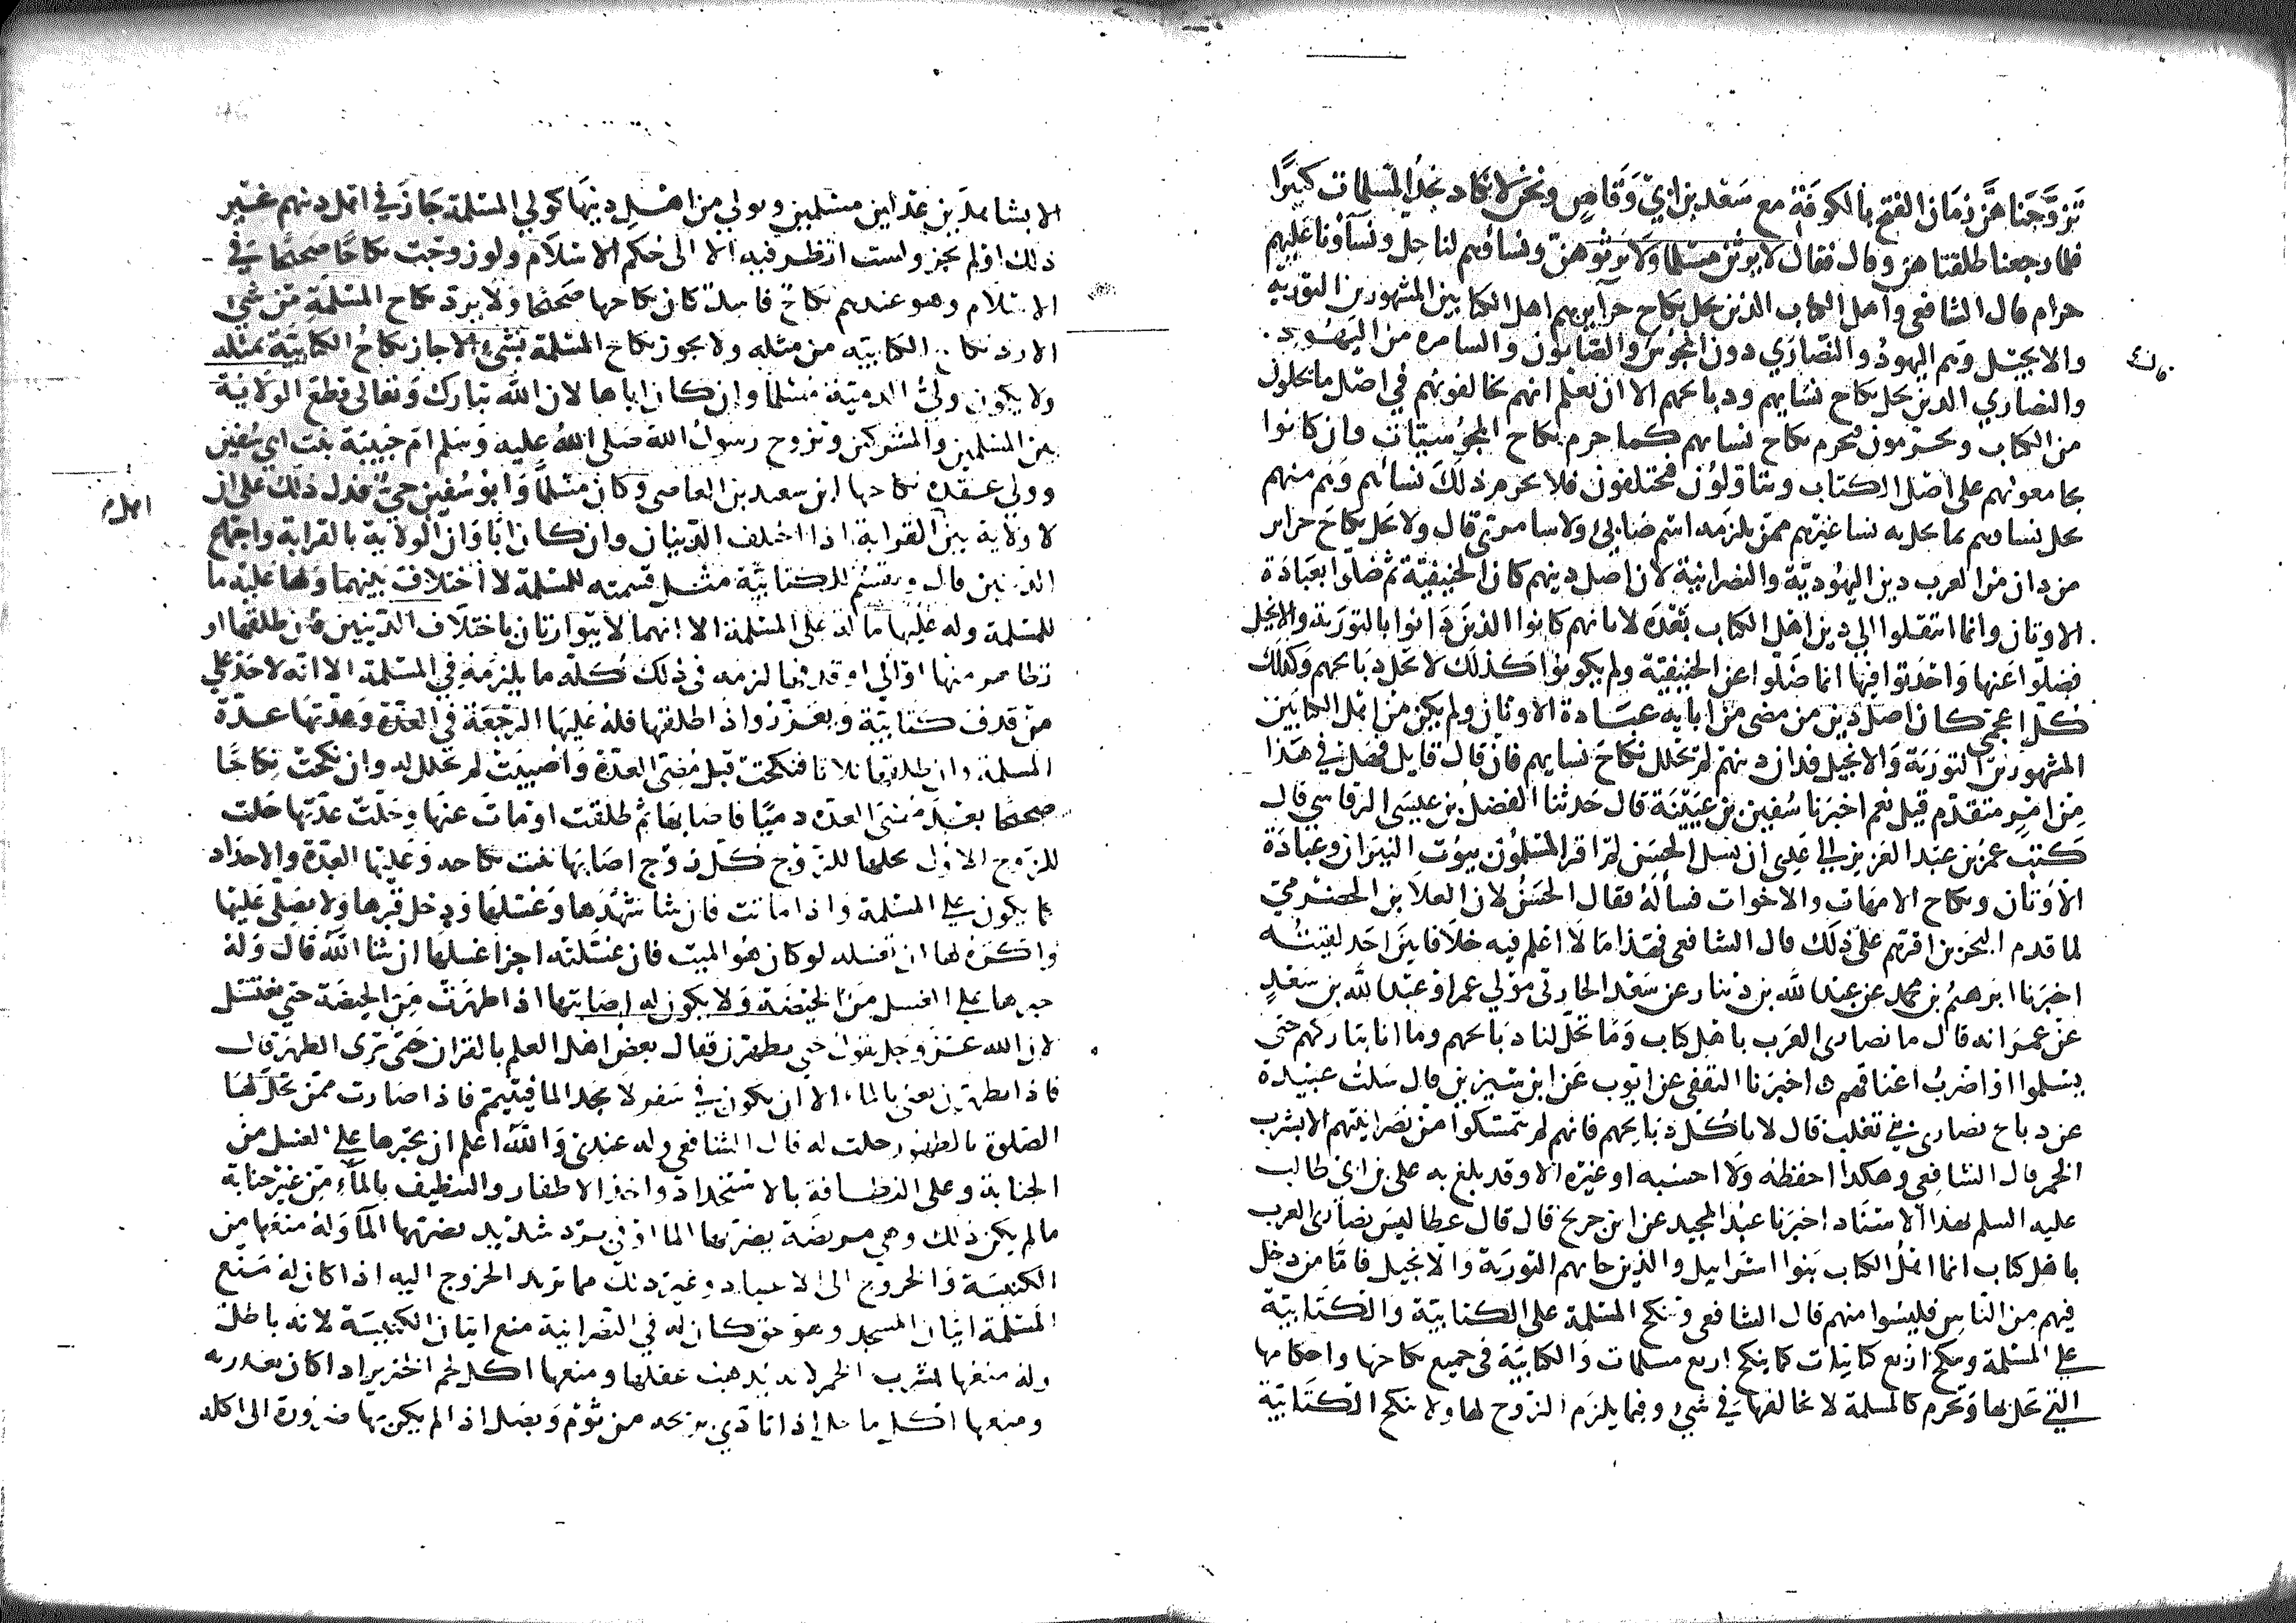 تزوجناهن زمان الفتح بالكوفة مع سعد بن ابي وقاص ونحن لا نكاد نجد المسلمات كثيرا
فلما رجعنا طلقناهن وقال فقال لا يرثن مسلما ولا يرثوهن ونساؤهم لنا حل ونساؤنا عليهم
حرام قال الشافعي واهل الكتاب الذين يحل نكاح حرايرهم اهل الكتابين المشهورين التورية
والانجيل وهم اليهود والنصاري دون المجوس والصابون والسامرة من اليهود
والنصاري الذين يحل نكاح نسايهم وذبايحهم الا ان نعلم انهم يخالفونهم في اصل ما يحلون
من الكتاب ويحرمون فيحرم نكاح نسايهم كما حرم نكاح المجوسيات وان كانوا
يجامعونهم على اصل الكتاب ويتاولون فيختلفون فلا يحرم ذلك نساءهم وهم منهم
يحل نساوهم بما يحل به نسا غيرهم ممن يلزمه اسم صابئ ولا سامري قال ولا يحل نكاح حراير
من دان من العرب دين اليهودية والنصرانية لان اصل دينهم كان الحنيفية ثم ضلوا بعبادة
الاوثان وانما انتقلوا الي دين اهل الكتاب بعده لا بانهم كانوا الذين دانوا بالتورية والانجيل
فضلوا عنها واحدثوا فيها انما ضلوا عن الحنيفية ولم يكونوا كذلك لا تحل ذبايحهم وكذلك
كل اعجمي كان اصل دين من مضى من ابايه عبادة الاوثان ولم يكن من اهل الكتابين
المشهورين التورية والانجيل فدان دينهم لم يحلل نكاح نسايهم فان قال قايل فهل في هذا
من امر متقدم قيل نعم اخبرنا سفين بن عيينة قال حدثنا الفضل بن عيسى الرقاشي قال
كتب عمر بن عبد العزيز الي عدى ان يسل الحسن لم اقر المسلمون بيوت النيران وعبادة
الاوثان ونكاح الامهات والاخوات فسأله فقال الحسن لان العلا بن الحضرمي
لما قدم البحرين اقرهم على ذلك قال الشافعي فهذا ما لا اعلم فيه خلافا بين احد لقيته
اخبرنا ابرهيم بن محمد عن عبد الله بن دينار عن سعد الجاري مولي عمر او عبد الله بن سعد
عن عمر انه قال ما نصارى العرب باهل كتاب وما تحل لنا ذبايحهم وما انا بتاركهم حتى
يسلموا او اضرب اعناقهم اخبرنا الثقفي عن ايوب عن ابن سيرين قال سلت عبيدة
عن ذبايح نصارى بني تغلب قال لا تاكل ذبايحهم فانهم لم يتمسكوا من نصرانيتهم الا بشرب
الخمر قال الشافعي وهكذا احفظه ولا احسبه او غيره الا وقد بلغ به على بن ابي طالب
عليه السلم بهذا الاسناد اخبرنا عبد المجيد عن ابن جريج قال قال عطا ليس نصارى العرب
باهل كتاب انما اهل الكتاب بنوا اسرايل والذين جاتهم التورية والانجيل فاما من دخل
فيهم من الناس فليسوا منهم قال الشافعي وتنكح المسلمة على الكتابية والكتابية
على المسلمة وينكح اربع كتابيات كما ينكح اربع مسلمات والكتابية في جميع نكاحها واحكامها
التي تحل بها وتحرم كالمسلمة لا تخالفها في شئ وفيما يلزم الزوج لها ولا تنكح الكتابية
الا بشاهدين عدلين مسلمين وبولي من اهل دينها كولي المسلمة جاز في اهل دينهم غير
ذلك او لم يجز ولست انظر فيه الا الى حكم الاسلام ولو زوجت نكاحا صحيحا في
الاسلام وهو عندهم نكاح فاسد كان نكاحها صحيحا ولا يرد نكاح المسلمة من شئ
الا رد نكاح الكتابية من مثله ولا يجوز نكاح المسلمة بشئ الا جاز نكاح الكتابية بمثله
ولا يكون ولي الذمية مسلما وان كان اباها لان الله تبارك وتعالى قطع الولاية
بين المسلمين والمشركين وتزوج رسول الله صلى الله عليه وسلم ام حبيبة بنت ابي سفين
وولي عقدة نكاحها ابن سعيد بن العاصي وكان مسلما وابو سفين حي فدل ذلك على ان
لا ولاية بين القرابة اذا اختلف الدينان وان كان ابا وان الولاية بالقرابة واجتماع
الدينين قال ويقسم للكتابية مثل قسمته للمسلمة لا اختلاف بينهما ولها عليه ما
للمسلمة وله عليها ما له على المسلمة الا انهما لا يتوارثان باختلاف الدينين فان طلقها او
تظاهر منها او الى او قذفها لزمه في ذلك كله ما يلزمه في المسلمة الا انه لا حد على
من قذف كتابية ويعزر واذا طلقها فله عليها الرجعة في العدة وعدتها عدة
المسلمة وان طلقها ثلاثا فنكحت قبل مضى العدة واصيبت لم تحلل له وان نكحت نكاحا
صحيحا بعد مضى العدة ذميا فاصابها ثم طلقت او مات عنها وحلت عدتها حلت
للزوج الاول يحلها للزوج كل زوج اصابها يثبت نكاحه وعليها العدة والاحداد
كما يكون على المسلمة واذا ماتت فان شا شهدها وغسلها ودخل قبرها ولا يصلي عليها
واكره لها ان تغسله لو كان هو الميت فان غسلته اجزا غسلها ان شا الله قال وله
جبرها على الغسل من الحيضة ولا يكون له اصابتها اذا طهرت من الحيضة حتى تغتسل
لان الله عز وجل يقول حتى يطهرن فقال بعض اهل العلم بالقران حتى ترى الطهر قال
فاذا تطهرن يعني بالماء الا ان تكون في سفر لا تجد الما فتتيمم فاذا صارت ممن تحل لها
الصلوة بالطهور حلت له قال الشافعي وله عندي والله اعلم ان يجبرها على الغسل من
الجنابة وعلى النظافة بالاستحداد واخذ الاظفار والتنظيف بالماء من غير جنابة
ما لم يكن ذلك وهي مريضة يضر بها الما او في برد شديد يضر بها الما وله منعها من
الكنيسة والخروج الى الاعياد وغير ذلك مما تريد الخروج اليه اذا كان له منع
المسلمة اتيان المسجد وهو حق كان له في النصرانية منع اتيان الكنيسة لانه باطل
وله منعها شرب الخمر لانه يذهب عقلها ومنعها اكل لحم الخنزير اذا كان يقذر به
ومنعها اكل ما حل اذا تاذي بريحه من ثوم وبصل اذا لم يكن بها ضرورة الى اكله